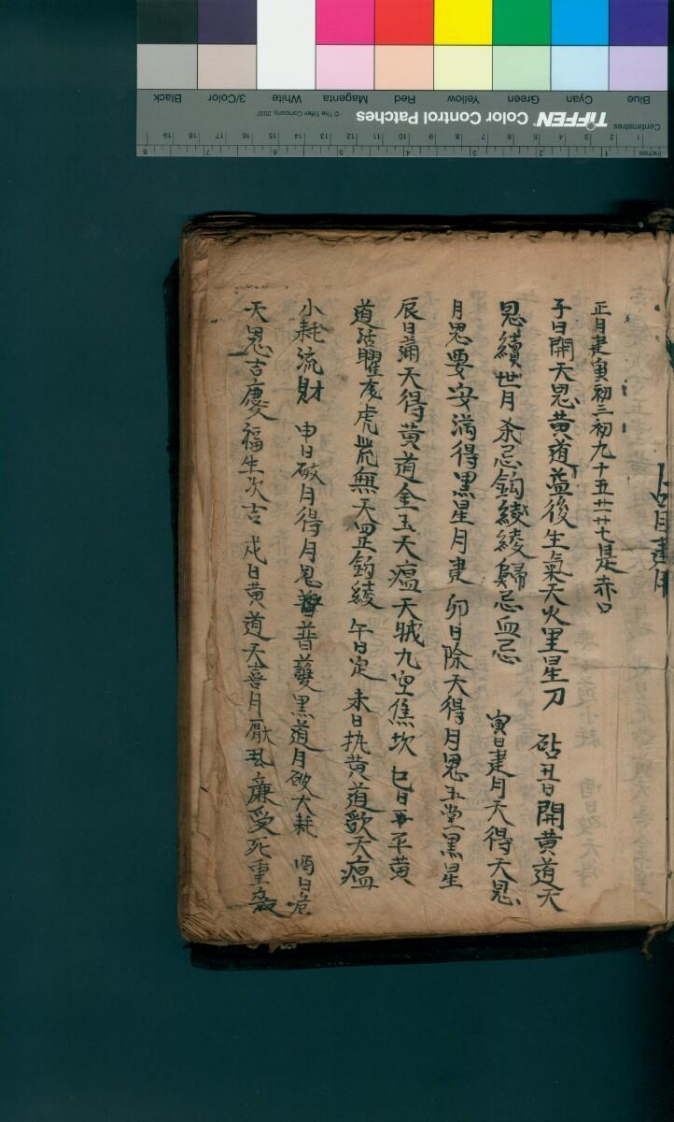 占月建用
正月建寅初三初九十五廿一廿七是赤口
子日開天恩黄道益後生氣天火黑星刀 砧丑日開黄道天
恩續世月杀忌鈎綾綾歸忌血忌 寅日建月天得天恩
月恩要安满得黑星月建 卯日除天得月恩玉堂黑星
辰日滿天得黄道金玉天瘟天賊九空焦坎 巳日再平黄
道活曜度虎荒無天罡鈎綾 午日定 未日执黄道歌天瘟
小耗流財 申日破月得月恩普普護黑道月破大耗 酉日危
天恩吉慶福生次吉 戌日黄道天喜月厭瓜廉受死重喪
TIFFEN Color Control Patches
© The Tiffen Company, 2007
Centimetres
Inches
Blue Cyan Green Yellow Red Magenta White 3/Color Black